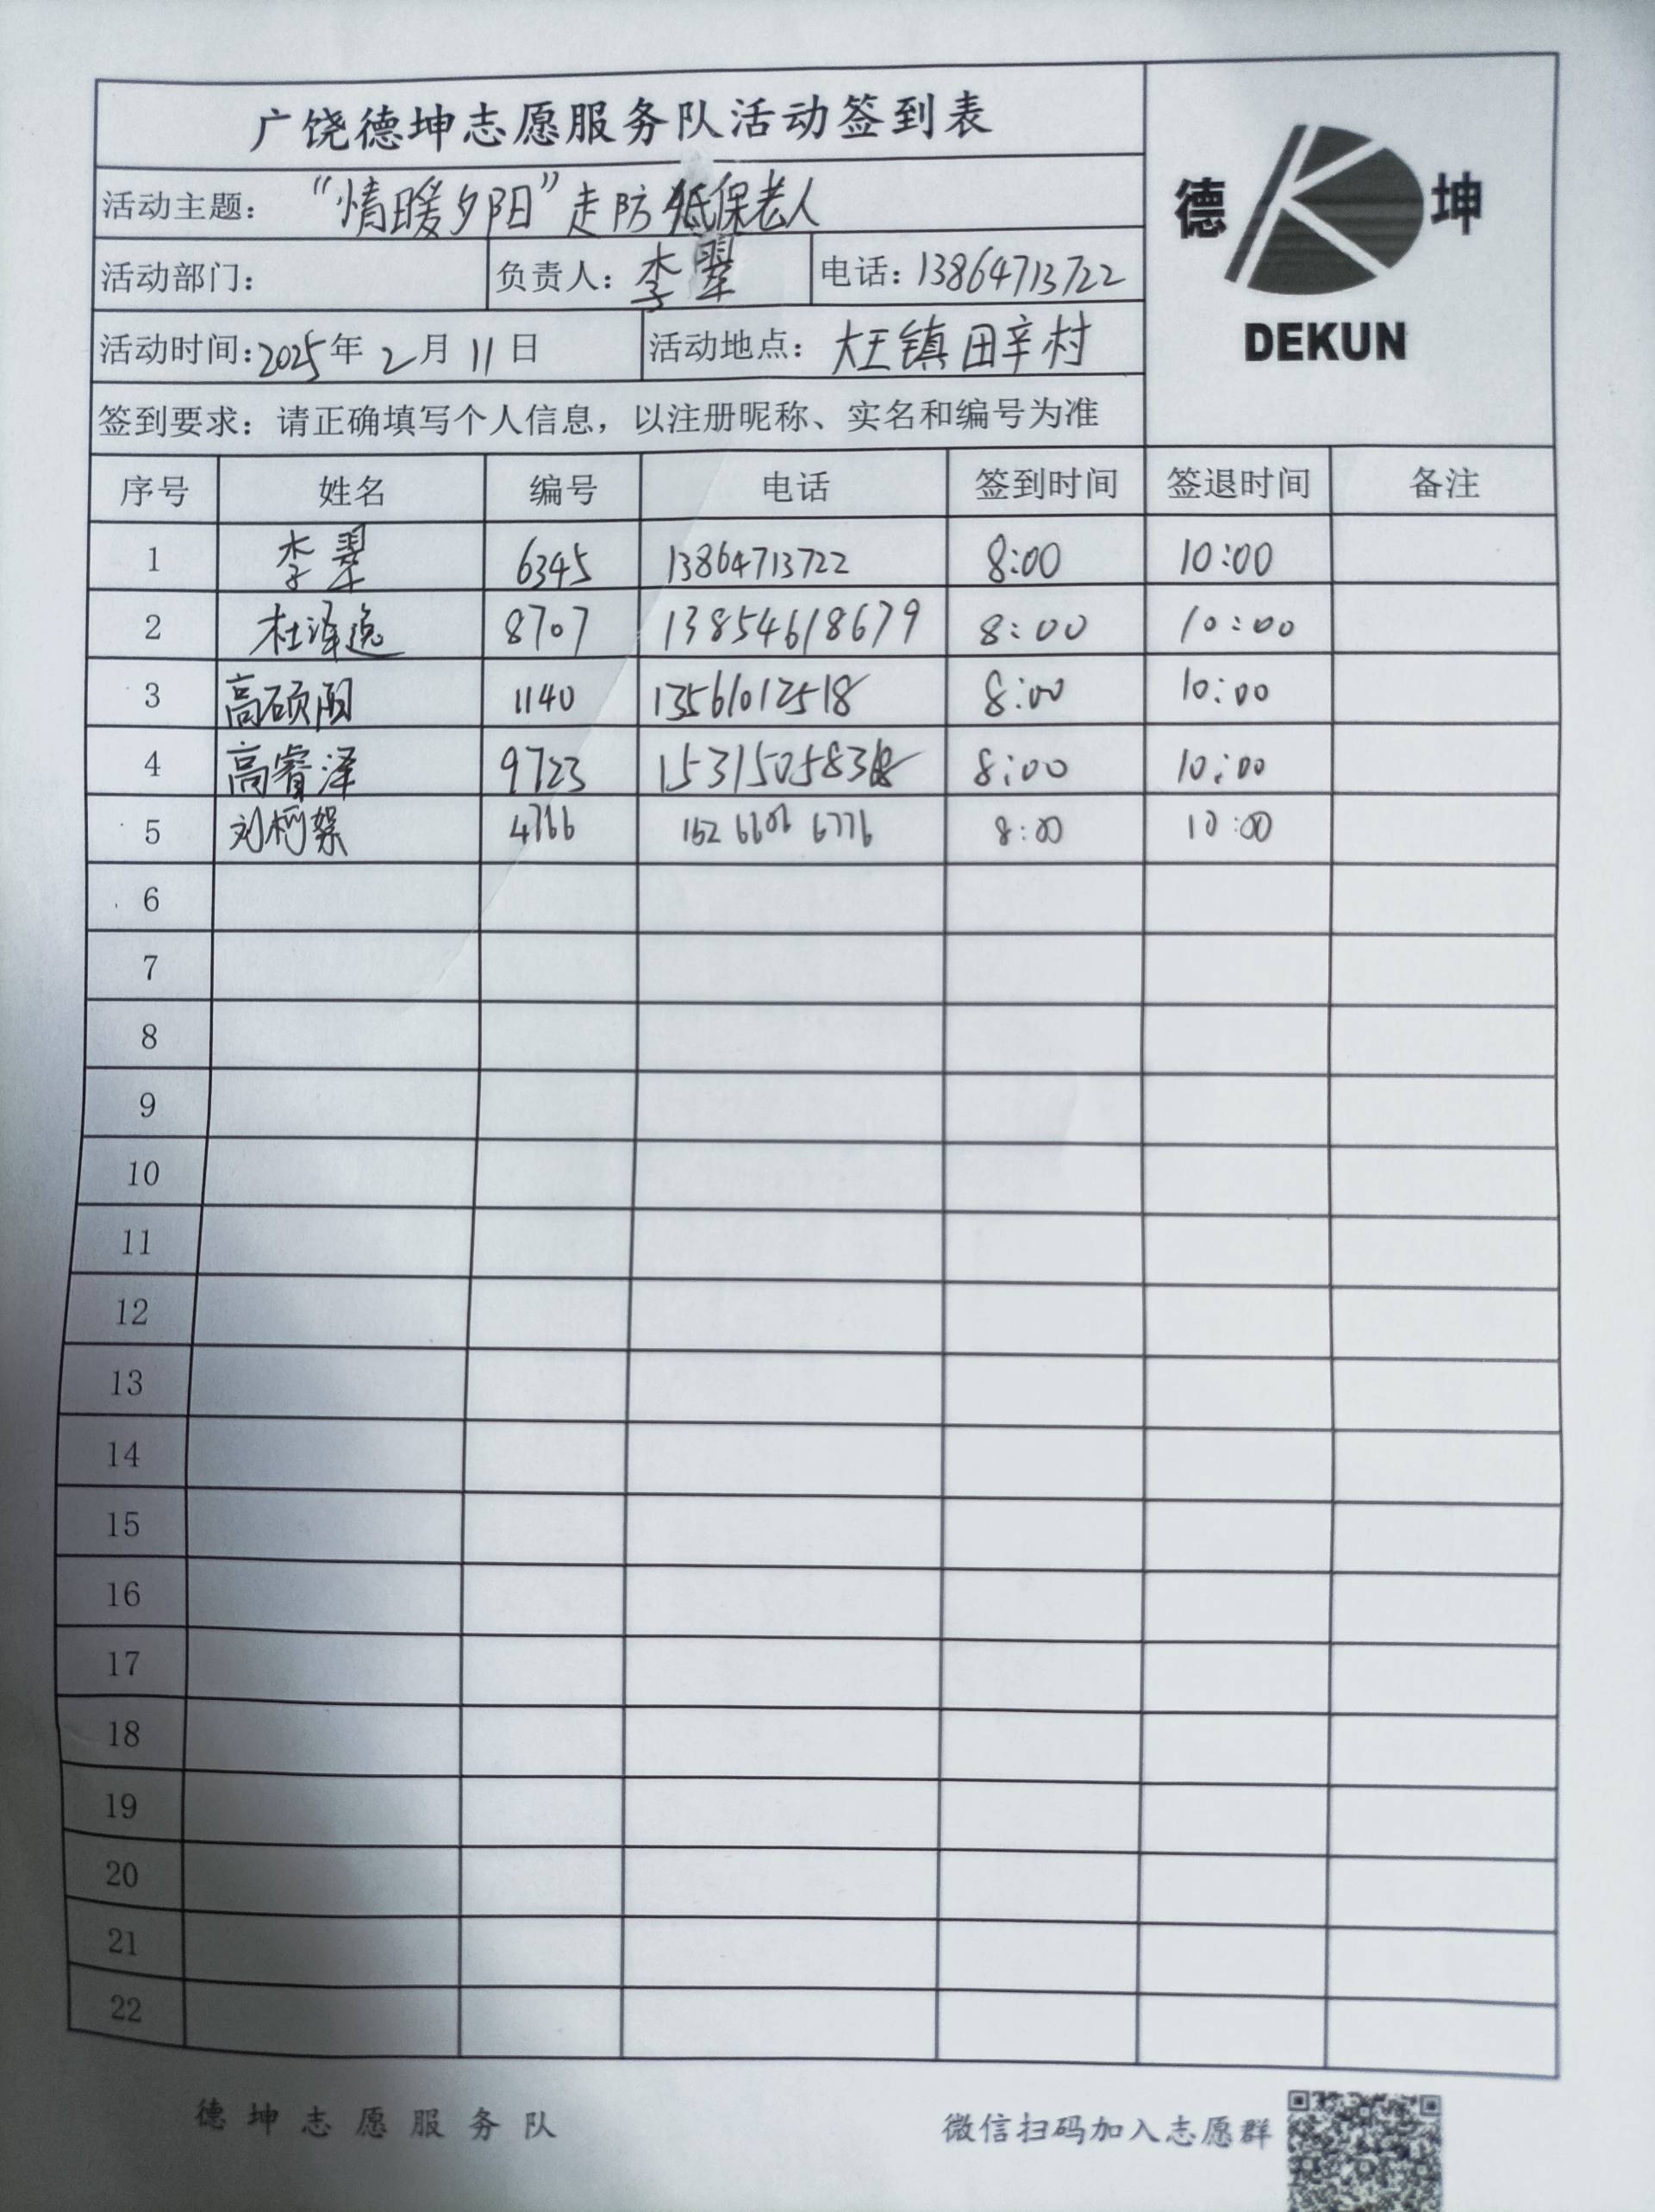 广饶德坤志愿服务队活动签到表
德 坤
DEKUN
活动主题: “情暖夕阳”走防低保老人
活动部门: 负责人: 李翠 电话: 13864713722
活动时间: 2025年 2月 11日 活动地点: 大王镇田辛村
签到要求: 请正确填写个人信息, 以注册昵称、实名和编号为准
序号 姓名 编号 电话 签到时间 签退时间 备注
1 李翠 6345 13864713722 8:00 10:00
2 杜泽逸 8707 13854618679 8:00 10:00
3 高硕阳 1140 13561012518 8:00 10:00
4 高睿泽 9723 8:00 10:00
5 4766 152 6606 6776 8:00 10:00
6
7
8
9
10
11
12
13
14
15
16
17
18
19
20
21
22
德坤志愿服务队 微信扫码加入志愿群